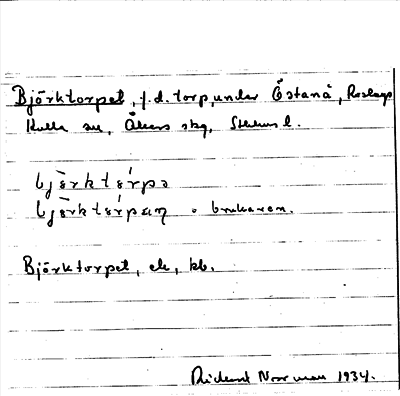 Björktorpet, f.d. torp, under Östanå, Roslags
Kulla sn, Åkers skg, Sthlms l.
bjèrktórpə
bjèrktórpaɳ o brukaren.
Björktorpet, ek, kb.
Rickard Norrman 1934.